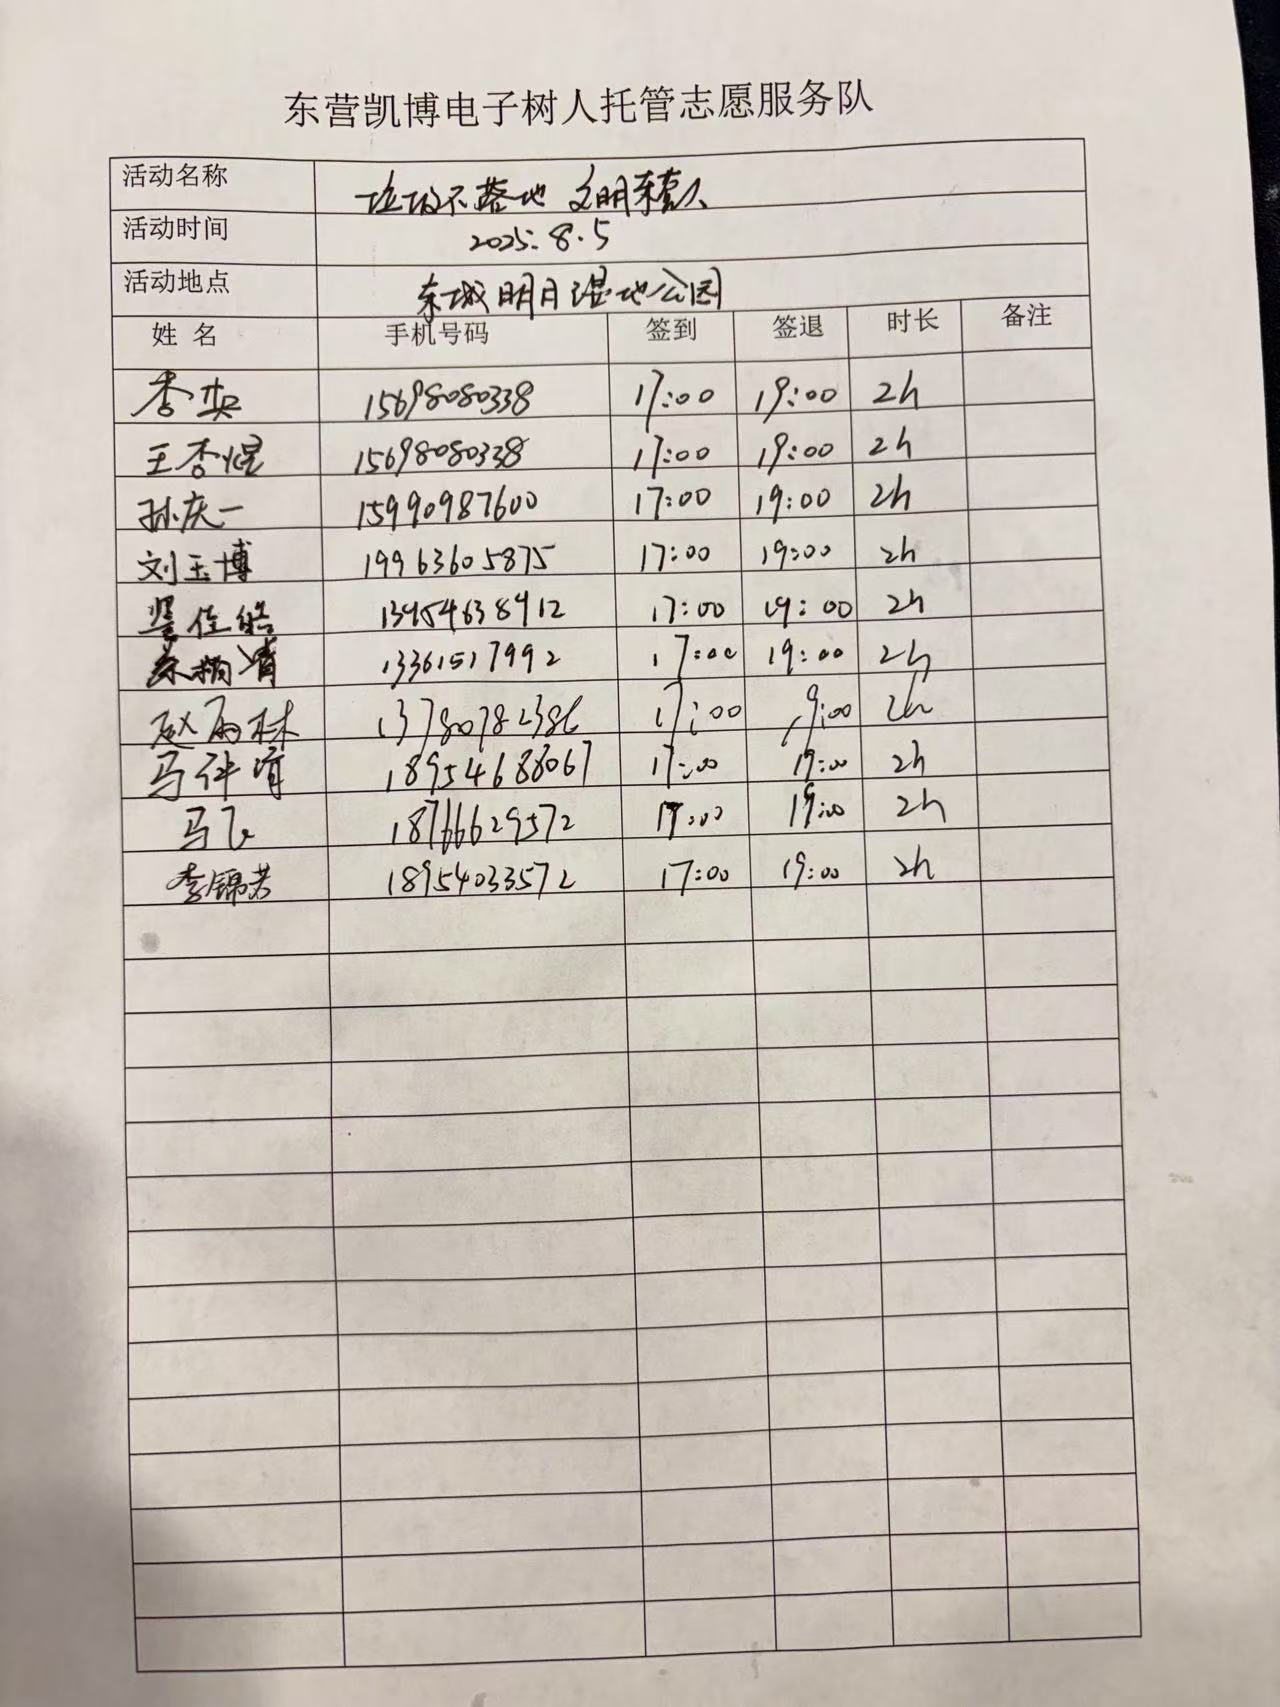 东营凯博电子树人托管志愿服务队
活动名称 垃圾不落地 文明东营人
活动时间 2025.8.5
活动地点 东城明月湿地公园
姓 名 手机号码 签到 签退 时长 备注
李英 15698080338 17:00 19:00 2h
王杏煜 15698080338 17:00 19:00 2h
孙庆一 15990987600 17:00 19:00 2h
刘玉博 19963605875 17:00 19:00 2h
佳皓 13954638912 17:00 19:00 2h
13361517992 17:00 19:00 2h
赵雨林 13780782386 17:00 19:00 2h
马 18954688067 17:00 19:00 2h
马飞 18766629572 17:00 19:00 2h
李锦若 18954033572 17:00 19:00 2h